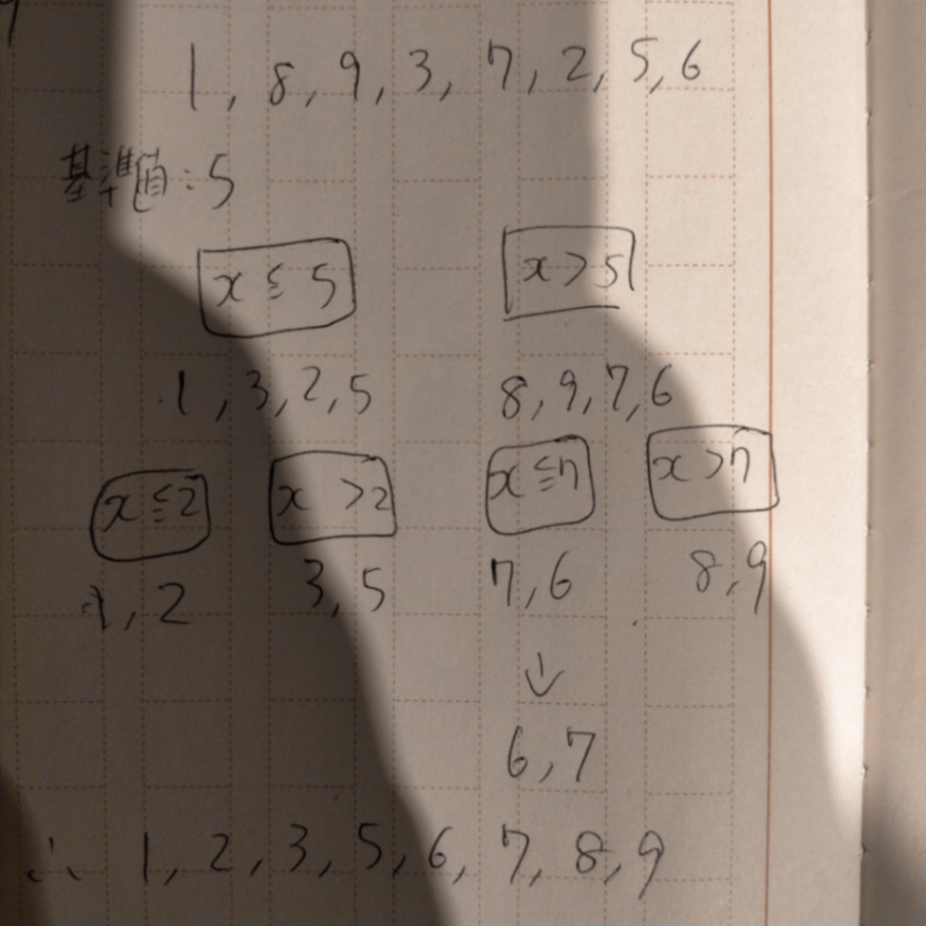 1, 8, 9, 3, 7, 2, 5, 6
基準値:5
x≦5 x>5
1, 3, 2, 5 8, 9, 7, 6
x≦2 x>2 x≦7 x>7
1, 2 3, 5 7, 6 8, 9
↓
6, 7
∴ 1, 2, 3, 5, 6, 7, 8, 9